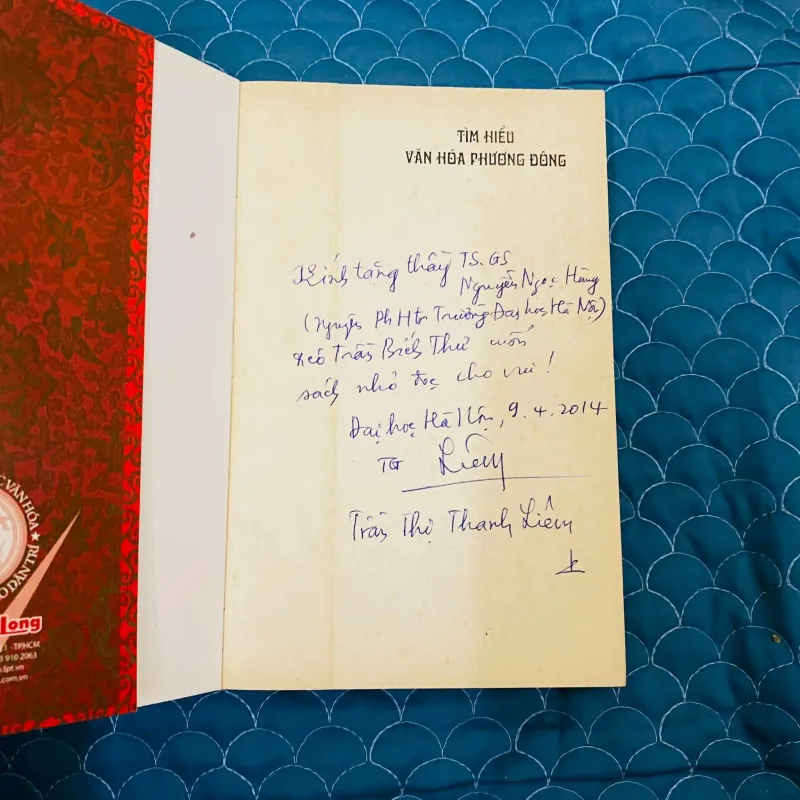 TÌM HIỂU
VĂN HÓA PHƯƠNG ĐÔNG
Kính tặng thầy TS.GS
Nguyễn Ngọc Hùng
(Nguyên Ph Htr Trường Đại học Hà Nội)
và cô Trần Bích Thư cuốn
sách nhỏ đọc cho vui!
Đại học Hà Nội, 9.4.2014
TG Liêm
Trần Thị Thanh Liêm
VĂN HÓA ★
DÂN TRÍ
Long
- TP.HCM
910 2063
fpt.vn
.com.vn